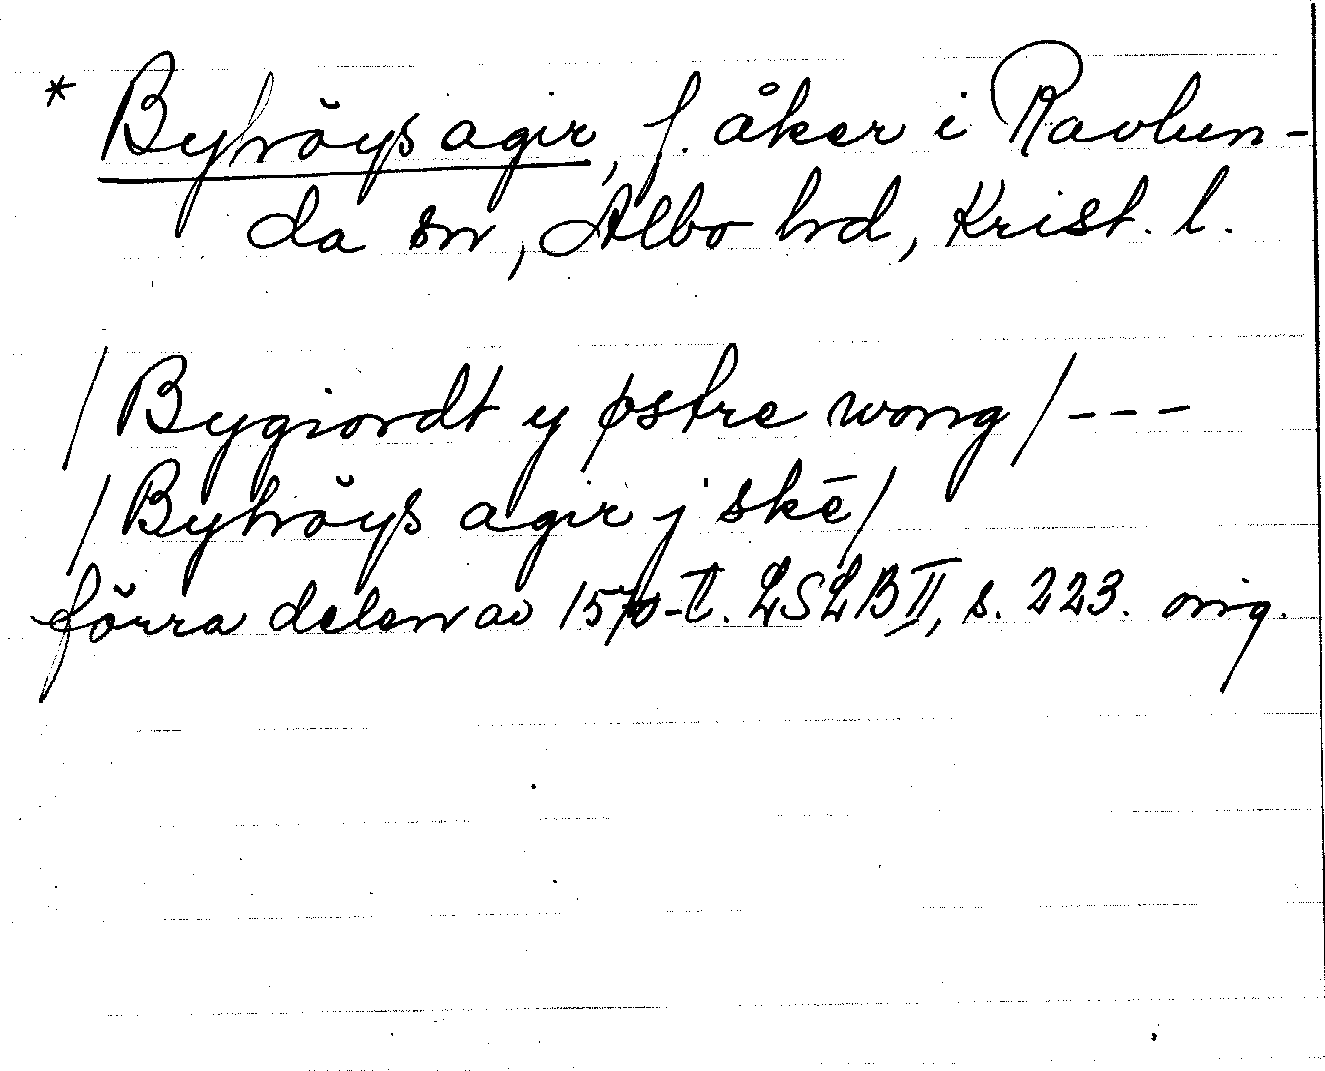 * Byhröys agir, f. åker i Ravlun-
da sn, Albo hd, Krist. l.
/ Bygiordt y østre wong / ---
/ Byhröys agir j skē /
förra delen av 1500-t. LSLB II, s. 223. orig.